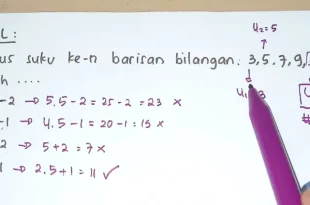 L:
U₂=5
us suku ke-n barisan bilangan: 3, 5, 7, 9,
h ....
U₁ 3
-2 → 5.5-2 = 25-2 = 23 ×
-1 → 4.5-1 = 20-1 = 15 ×
2 → 5+2 = 7 ×
1 → 2.5+1 = 11 ✓